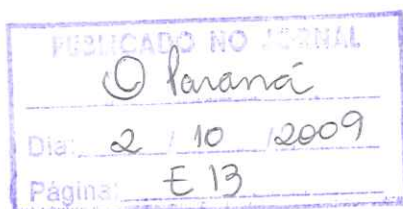 PUBLICADO NO JORNAL
O Paraná
Dia: 2 / 10 / 2009
Página: E 13